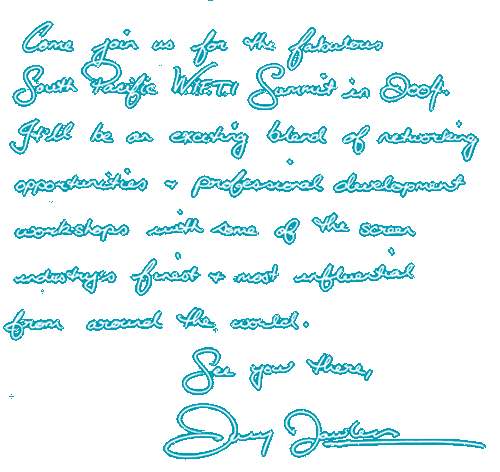 Come join us for the fabulous
South Pacific WIFTI Summit in 2007.
It'll be an exciting blend of networking
opportunities + professional development
workshops with some of the screen
industry's finest + most influential
from around the world.
See you there,